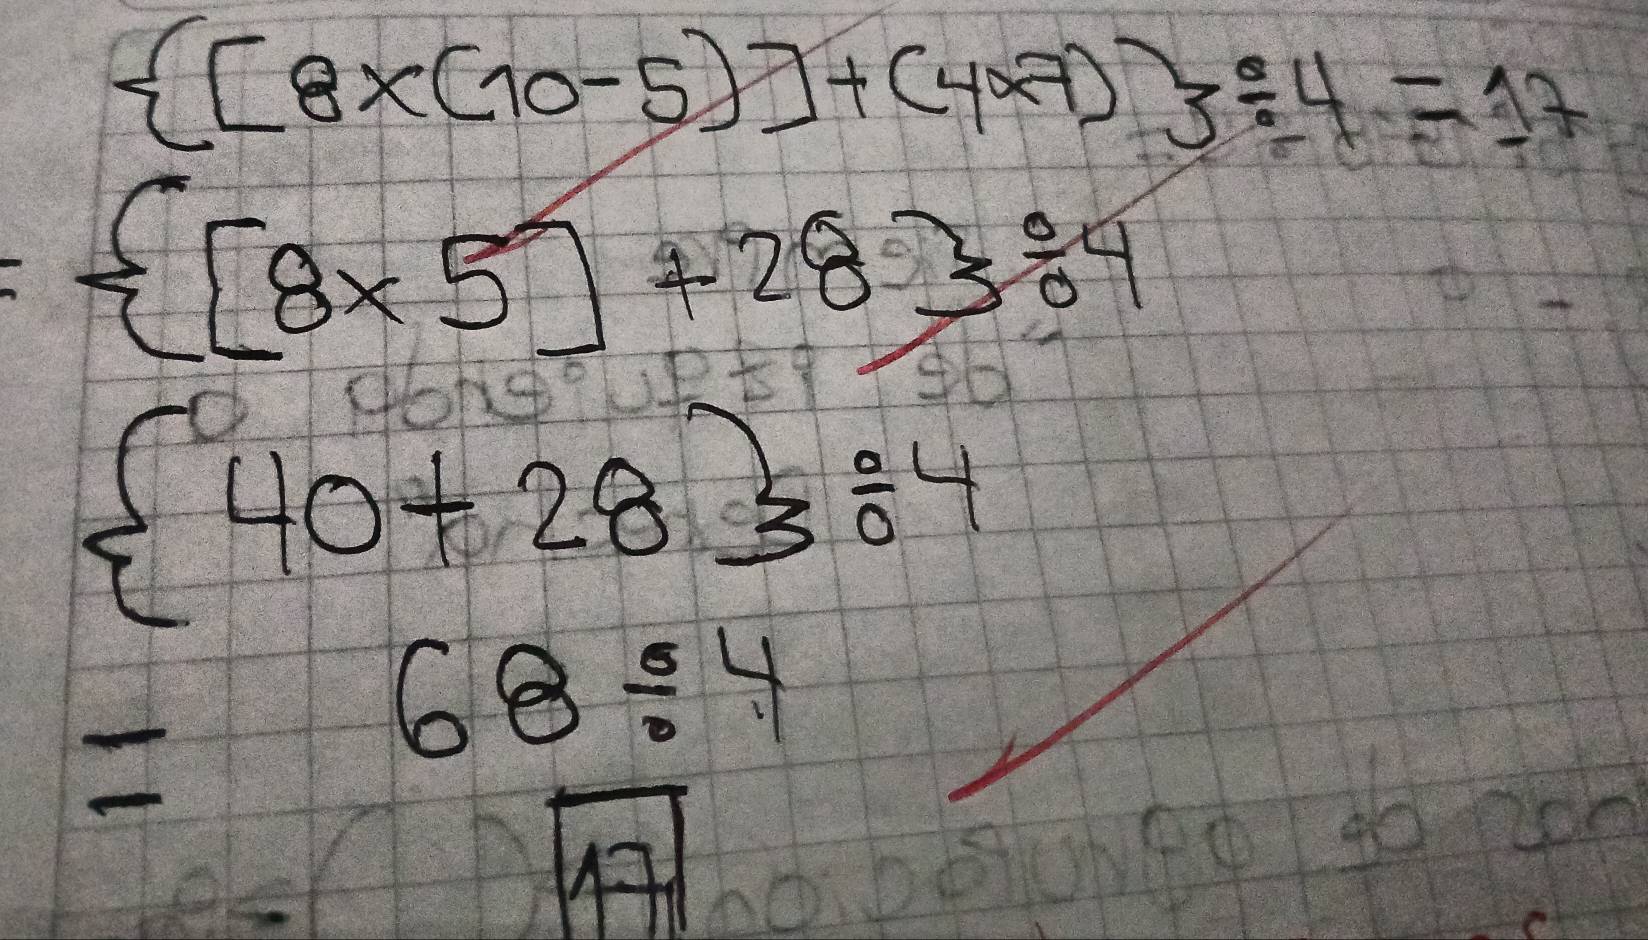 {[8×(10-5)]+(4×7)}÷4=17
={[8×5]+28}÷4
{40+28}÷4
= 68÷4
17